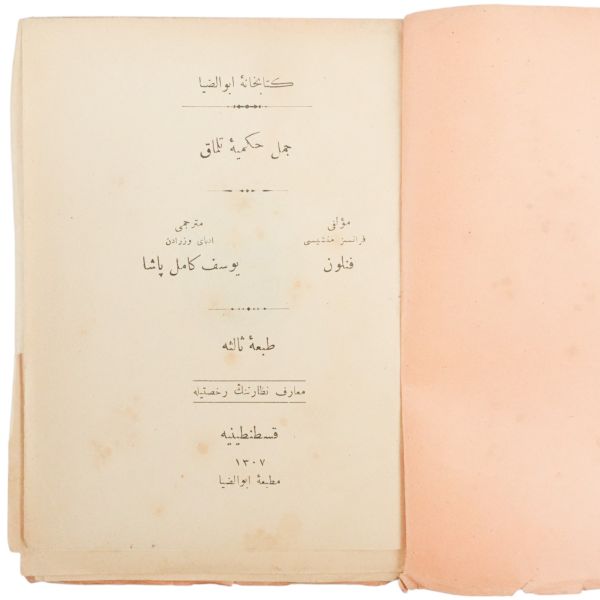 كتابخانهٔ ابوالضيا
جمل حكميهٔ تلماق
مؤلفى
فرانسز منشيسى
فنلون
مترجمى
ادباى وزرادن
يوسف كامل پاشا
طبعهٔ ثالثه
معارف نظارتنڭ رخصتيله
قسطنطينيه
١٣٠٧
مطبعهٔ ابوالضيا